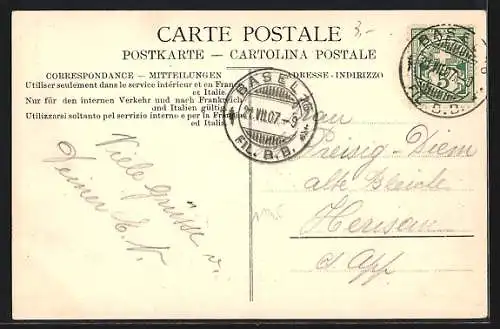 3,-
CARTE POSTALE
POSTKARTE – CARTOLINA POSTALE
CORRESPONDANCE – MITTEILUNGEN
ADRESSE-INDIRIZZO
Utiliser seulement dans le service intérieur et en France
et Italie.
Nur für den internen Verkehr und nach Frankreich
und Italien gültig.
Utilizzarsi soltanto pel servizio interno e per la Francia
ed Italia.
BASEL
VII.07.-9
FIL. B.B.
BASEL
VII.07
FIL. B.B.
Viele Grüsse v.
Deiner E. V.
Frau
Preisig-Diem
alte Bleiche
Herisau
Ct. App.